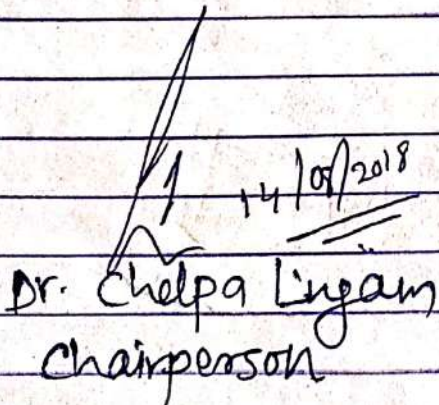 14/08/2018
Dr. Chelpa Lingam
Chairperson